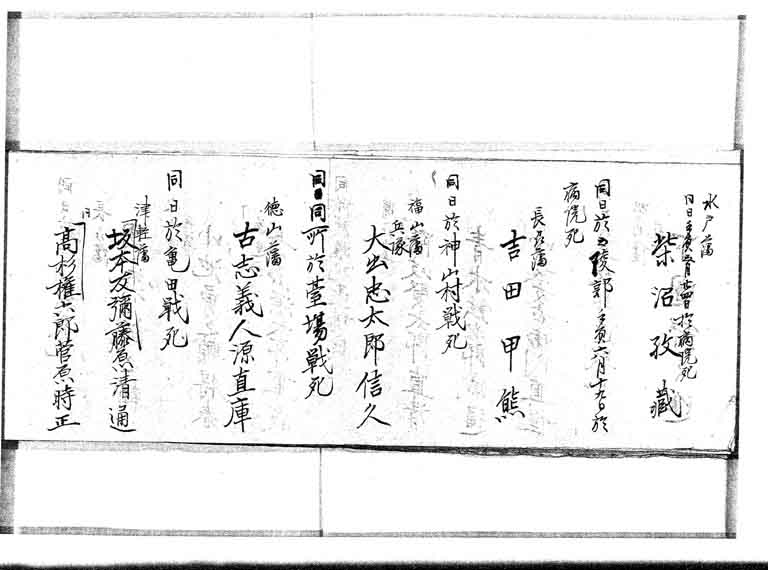 水戸藩
同日 於病院死
柴沼孜藏
同日於五陵郭 六月十九日於
病院死
長州藩
吉田甲熊
同日於神山村戦死
福山藩
兵隊
大出忠太郎信久
同所於臺場戦死
徳山藩
古志義人源直庫
同日於亀田戦死
津軽藩
坂本友彌藤原清通
同
高杉權六郎菅原時正